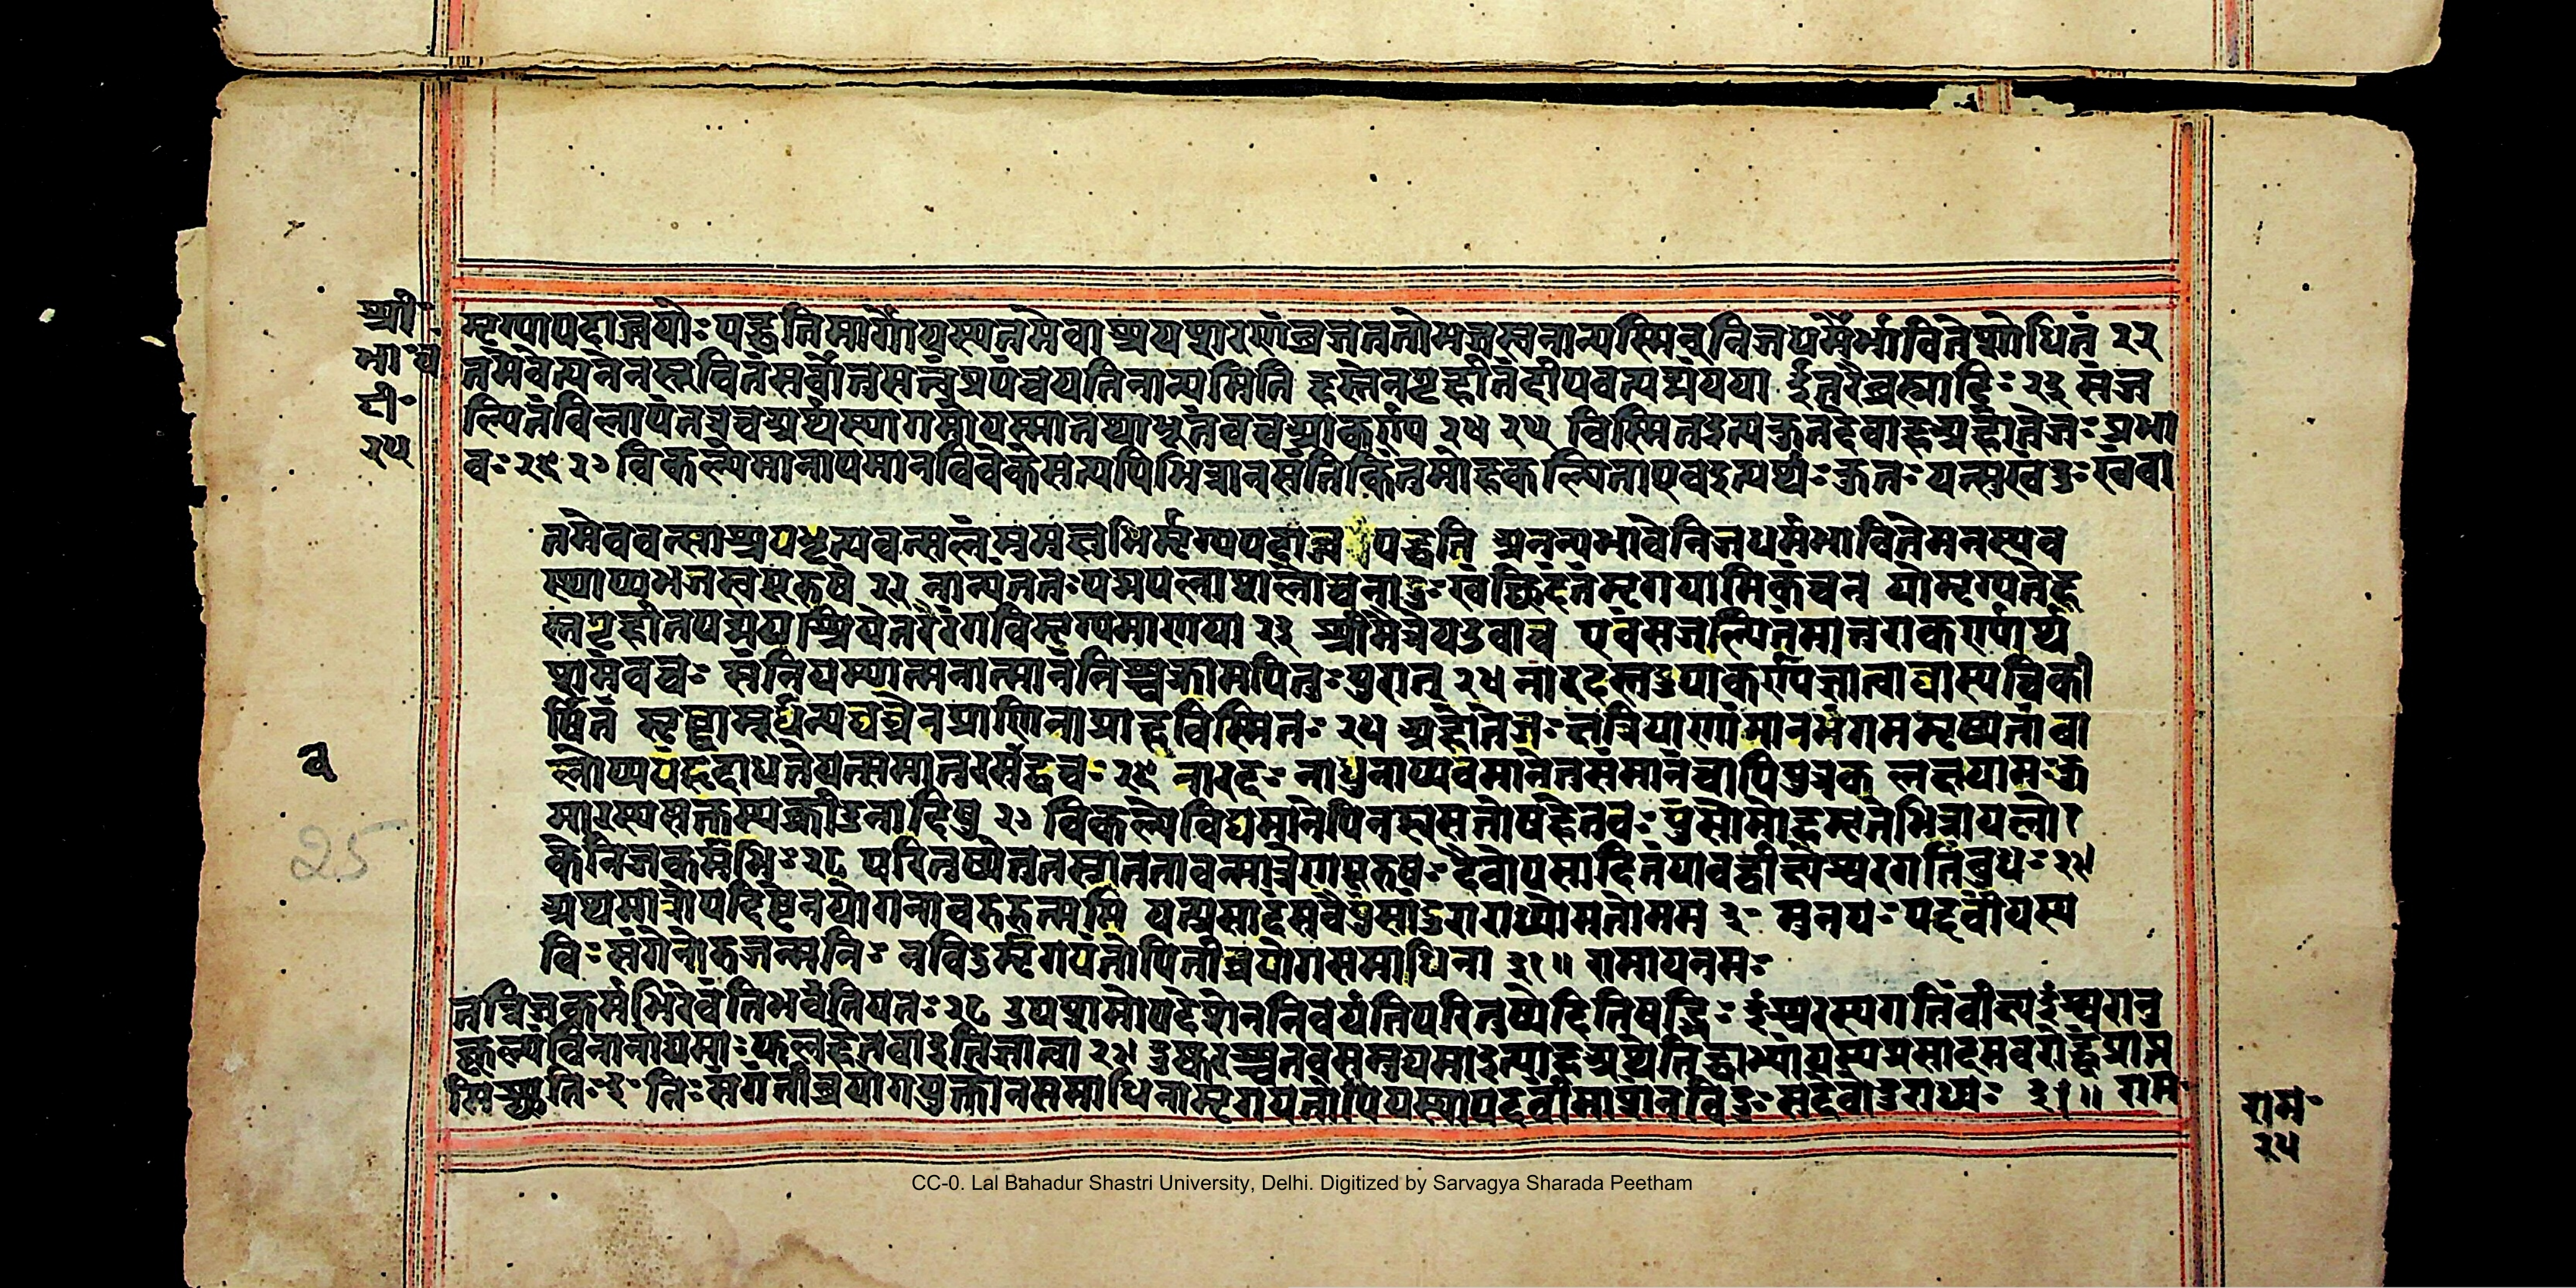 श्री
भा·च
टी·
२५
मृग्यपदाब्जयोः पद्धतिर्मार्गो यस्य तमेवाश्रय शरणं व्रज ततो भजस्व नान्यस्मिन् निजधर्मैर्भाविते शोधितं २२
तमेवेत्यनेन सूचितं सर्वोत्तमत्वं प्रपंचयति नान्यमिति हस्तेन गृहीतं दीपवत्पद्मं यया ईतरैर्ब्रह्मादिभिः २३ संज
ल्पितं विलापं तत्र च अर्थस्यागमो यस्मात्तथाभूतं वचश्राकर्ण्य २४ २५ विस्मित इत्यक्तं तदेवाह अहो तेजः प्रभा
वः २६ २७ विकल्पे मानापमानविवेके सत्यपि भिन्ना न संति किंतु मोहकल्पिता एव इत्यर्थः कुतः यत्सुखदुःखं वा
तमेव वत्साश्रय भृत्यवत्सलं मुमुक्षुभिर्मृग्यपदाब्ज पद्धतिं अनन्यभावे निजधर्मभाविते मनस्यव
स्थाप्य भजस्व पूरुषं २२ नान्यं ततः पद्मपलाशलोचनादुःखच्छिदं ते मृगयामि कंचन यो मृग्यते ह
स्तगृहीतपद्मया श्रियेतरैरंग विमृग्यमाणया २३ श्रीमैत्रेय उवाच एवं संजल्पितं मातुराकर्ण्यार्थ
गमं वचः संनियम्यात्मनात्मानं निश्चक्राम पितुः पुरात् २४ नारदस्तदुपाकर्ण्य ज्ञात्वा चास्य चिकी
र्षितं स्पृष्ट्वा मूर्धन्यघघ्नेन पाणिना प्राह विस्मितः २५ अहो तेजः क्षत्रियाणां मानभंगममृष्यतां बा
लोप्ययं हृदा धत्ते यत्समातुरसद्वचः २६ नारदः नाधुनाप्यवमानं ते संमानं चापि पुत्रक लक्षयामः कु
मारस्य सक्तस्य क्रीडनादिषु २७ विकल्पे विद्यमानेपि न ह्यसंतोषहेतवः पुंसो मोहमृते भिन्ना यल्लो
के निजकर्मभिः २८ परितुष्येत्ततस्तात तावन्मात्रेण पूरुषः दैवोपसादितं यावद्वीक्ष्येश्वरगतिं बुधः २९
अथ मात्रोपदिष्टेन योगेनावरुरुत्ससि यत्प्रसादं स वै पुंसां दुराराध्यो मतो मम ३० मुनयः पदवीं यस्य
निःसंगेनोरुजन्मभिः न विदुर्मृगयंतोपि तीव्रयोगसमाधिना ३१॥ रामायनमः
तन्निजकर्मभिरेवेति भवंति यतः २८ उपशमोपदेशेन निवर्त्तयति परितुष्येदिति षड्भिः ईश्वरस्य गतिं वीक्ष्य ईश्वरानु
कूल्यं विना नोद्यमाः फलहेतव इति ज्ञात्वा २९ दुष्करश्च तव समुद्यम इत्याह अथेति द्वाभ्यां यस्य प्रसादमवरोद्धुं प्राप्तु
मिच्छति ३० निःसंगतीव्रयोगयुक्तेन समाधिना मृगयंतोपि यस्य पदवीं मार्गं न विदुः स देवो दुराराध्यः ३१॥ राम
व
25
राम·
२५
CC-0. Lal Bahadur Shastri University, Delhi. Digitized by Sarvagya Sharada Peetham